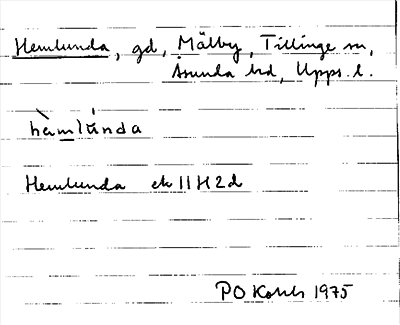 Hemlunda, gd, Mälby, Tillinge sn,
Åsunda hd, Upps. l.
hὰmlúnda
Hemlunda ek 11H2d
PO 1975